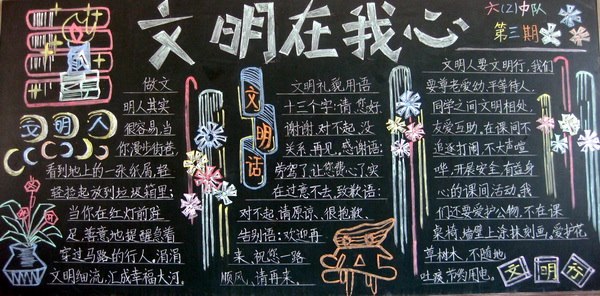 文明在我心
六(2)中队
第三期
文明人
做文
明人其实
很容易,当
你漫步街巷,
看到地上的一张纸屑,轻
轻捡起放到垃圾箱里;
当你在红灯前驻
足,善意地提醒急着
穿过马路的行人,涓涓
文明细流,汇成幸福大河。
文明话
文明礼貌用语
十三个字:请,您好
谢谢,对不起,没
关系,再见,感谢语:
劳驾了让您费心了实
在过意不去,致歉语:
对不起,请原谅、很抱歉、
告别语:欢迎再
来,祝您一路
顺风、请再来、
文明人要文明行,我们
要尊老爱幼,平等待人,
同学之间文明相处,
友爱互助,在课间不
追逐打闹,不大声喧
哗,开展安全,有益身
心的课间活动,我
们还要爱护公物,不在课
桌椅、墙壁上涂抹刻画,爱护花
草树木,不随地
吐痰节约用电。
文明行